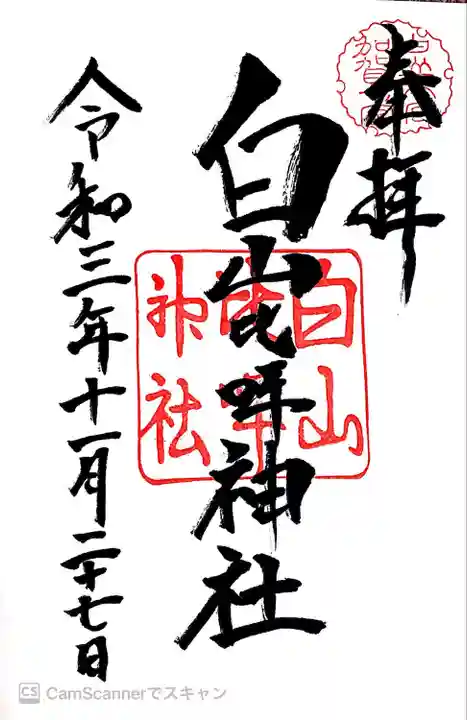 奉拝
白山比咩神社
令和三年十一月二十七日
白山
神社
加賀
CS CamScannerでスキャン